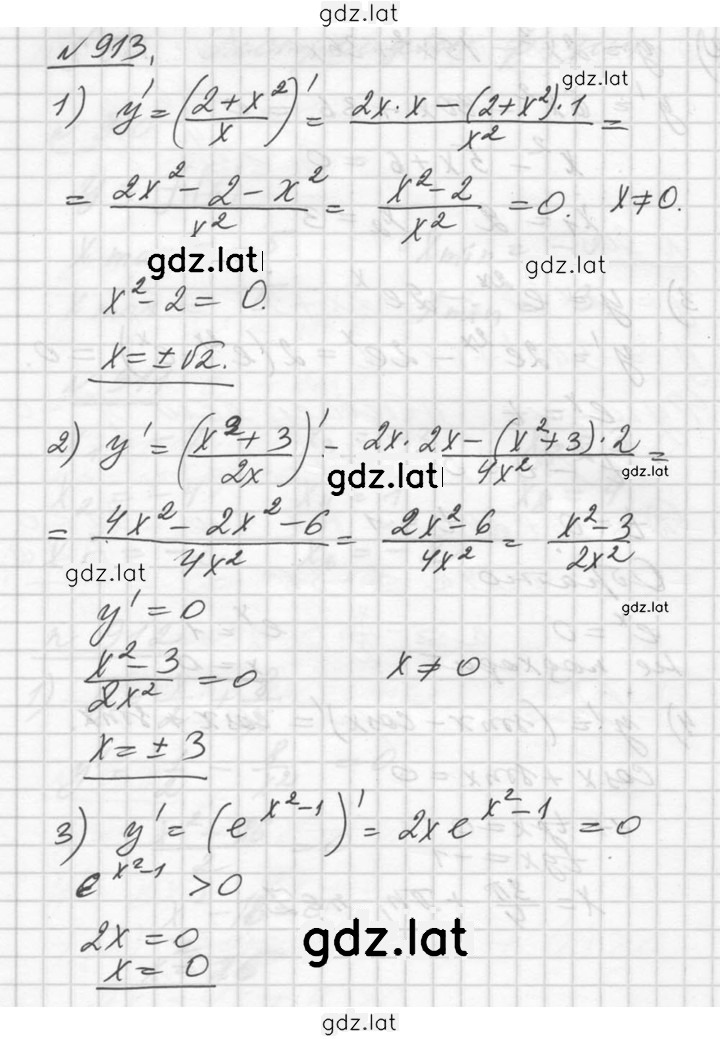 gdz.lat
№913.
gdz.lat
1) y' = ((2+x²)/x)' = (2x·x − (2+x²)·1)/x² =
= (2x² − 2 − x²)/x² = (x² − 2)/x² = 0. x ≠ 0.
gdz.lat gdz.lat
x² − 2 = 0.
x = ±√2.
2) y' = ((x² + 3)/2x)' − (2x·2x − (x² + 3)·2)/4x² =
gdz.lat gdz.lat
= (4x² − 2x² − 6)/4x² = (2x² − 6)/4x² = (x² − 3)/2x²
gdz.lat
y' = 0
gdz.lat
(x² − 3)/2x² = 0 x ≠ 0
x = ± 3
3) y' = (e^(x²−1))' = 2x e^(x²−1) = 0
e^(x²−1) > 0
2x = 0
gdz.lat
x = 0
gdz.lat